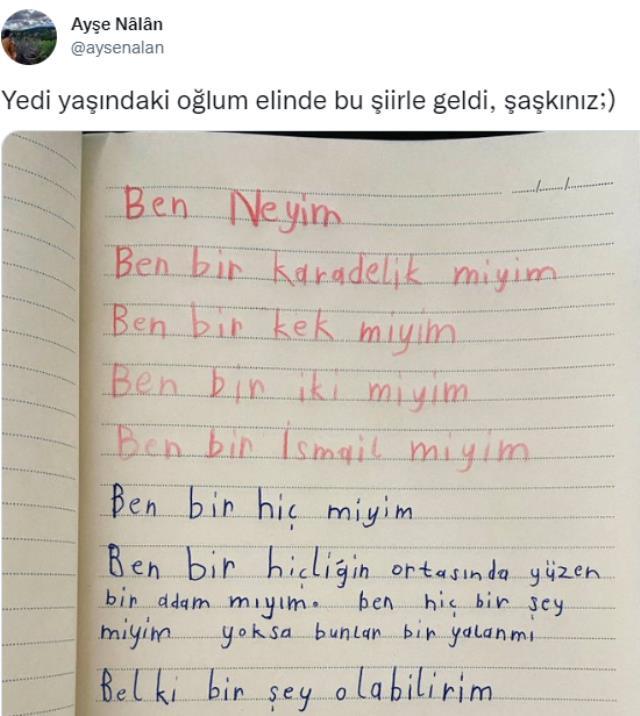 Ayşe Nâlân
@aysenalan
Yedi yaşındaki oğlum elinde bu şiirle geldi, şaşkınız;)
Ben Neyim
Ben bir karadelik miyim
Ben bir kek miyim
Ben bir iki miyim
Ben bir İsmail miyim
Ben bir hiç miyim
Ben bir hiçliğin ortasında yüzen
bir adam mıyım. ben hiç bir şey
miyim yoksa bunlar bir yalanmı
Belki bir şey olabilirim